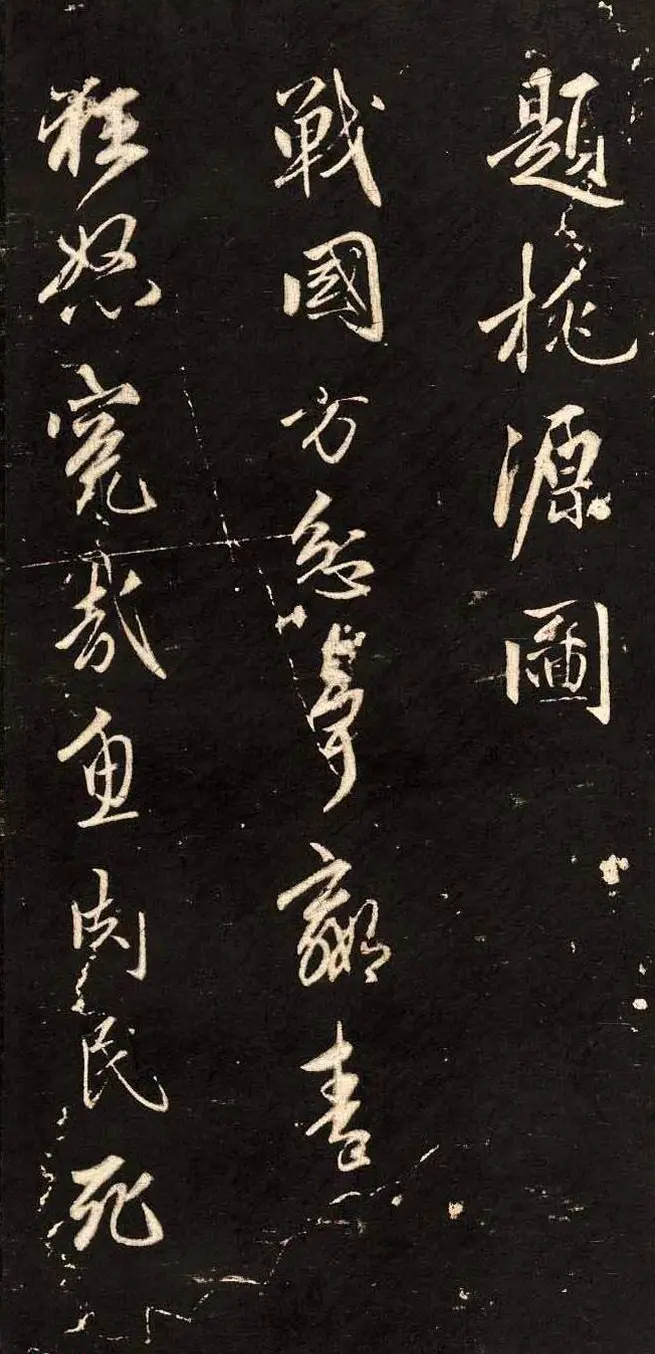 題桃源圖
戰國方忿爭嬴秦
怒冤哉魚肉民死